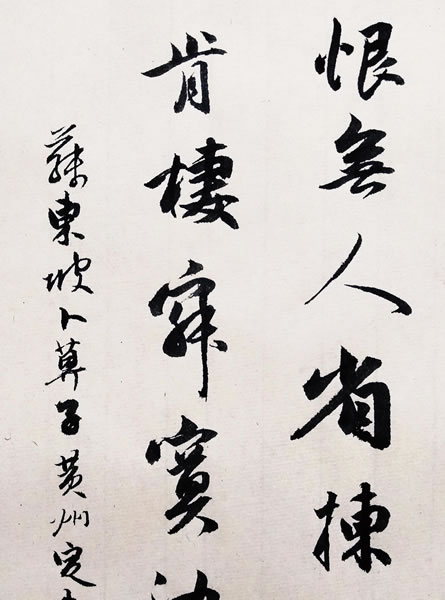 恨無人省揀
肯棲寂寞
蘇東坡卜算子黃州定